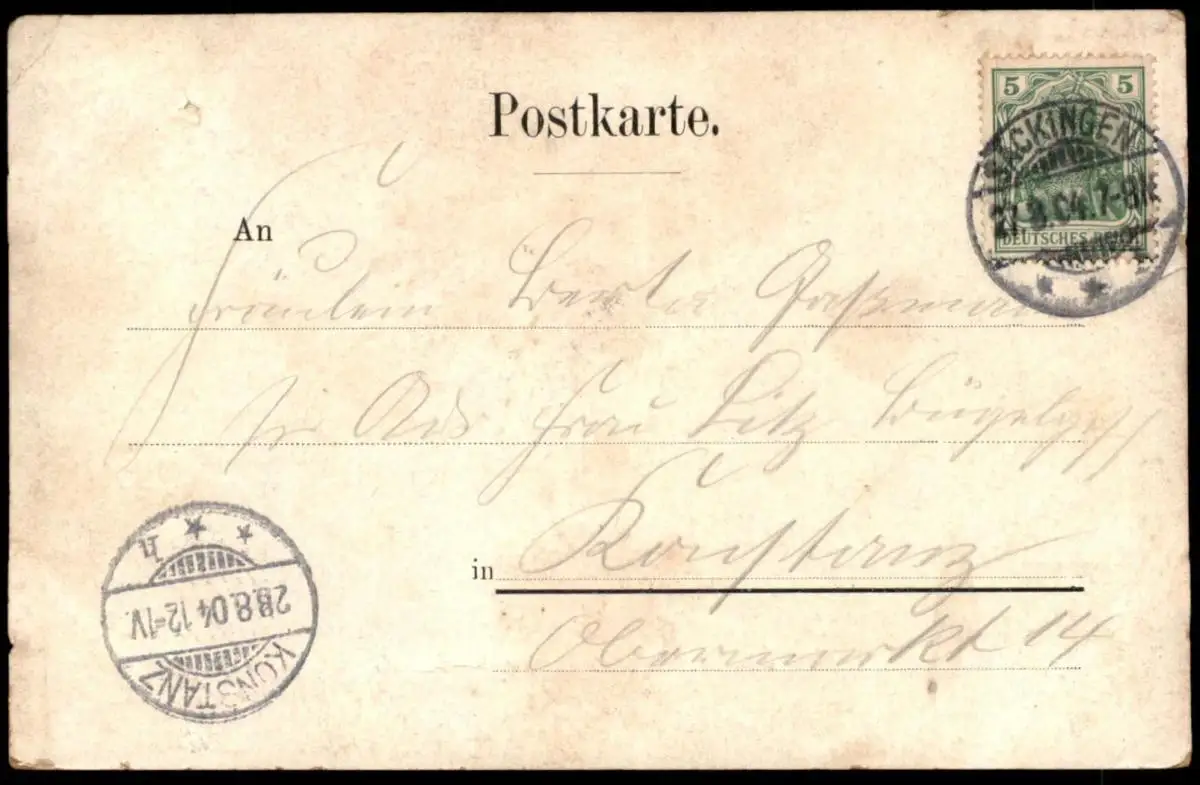 Postkarte.
5 5
SÄCKINGEN
27.8.04.7-8N.
DEUTSCHES REICH
An
Fräulein Berta Gaßmann
Adr Frau Litz Bügelgesch
in Konstanz
Obermarkt 14
KONSTANZ
28.8.04 12-1V.